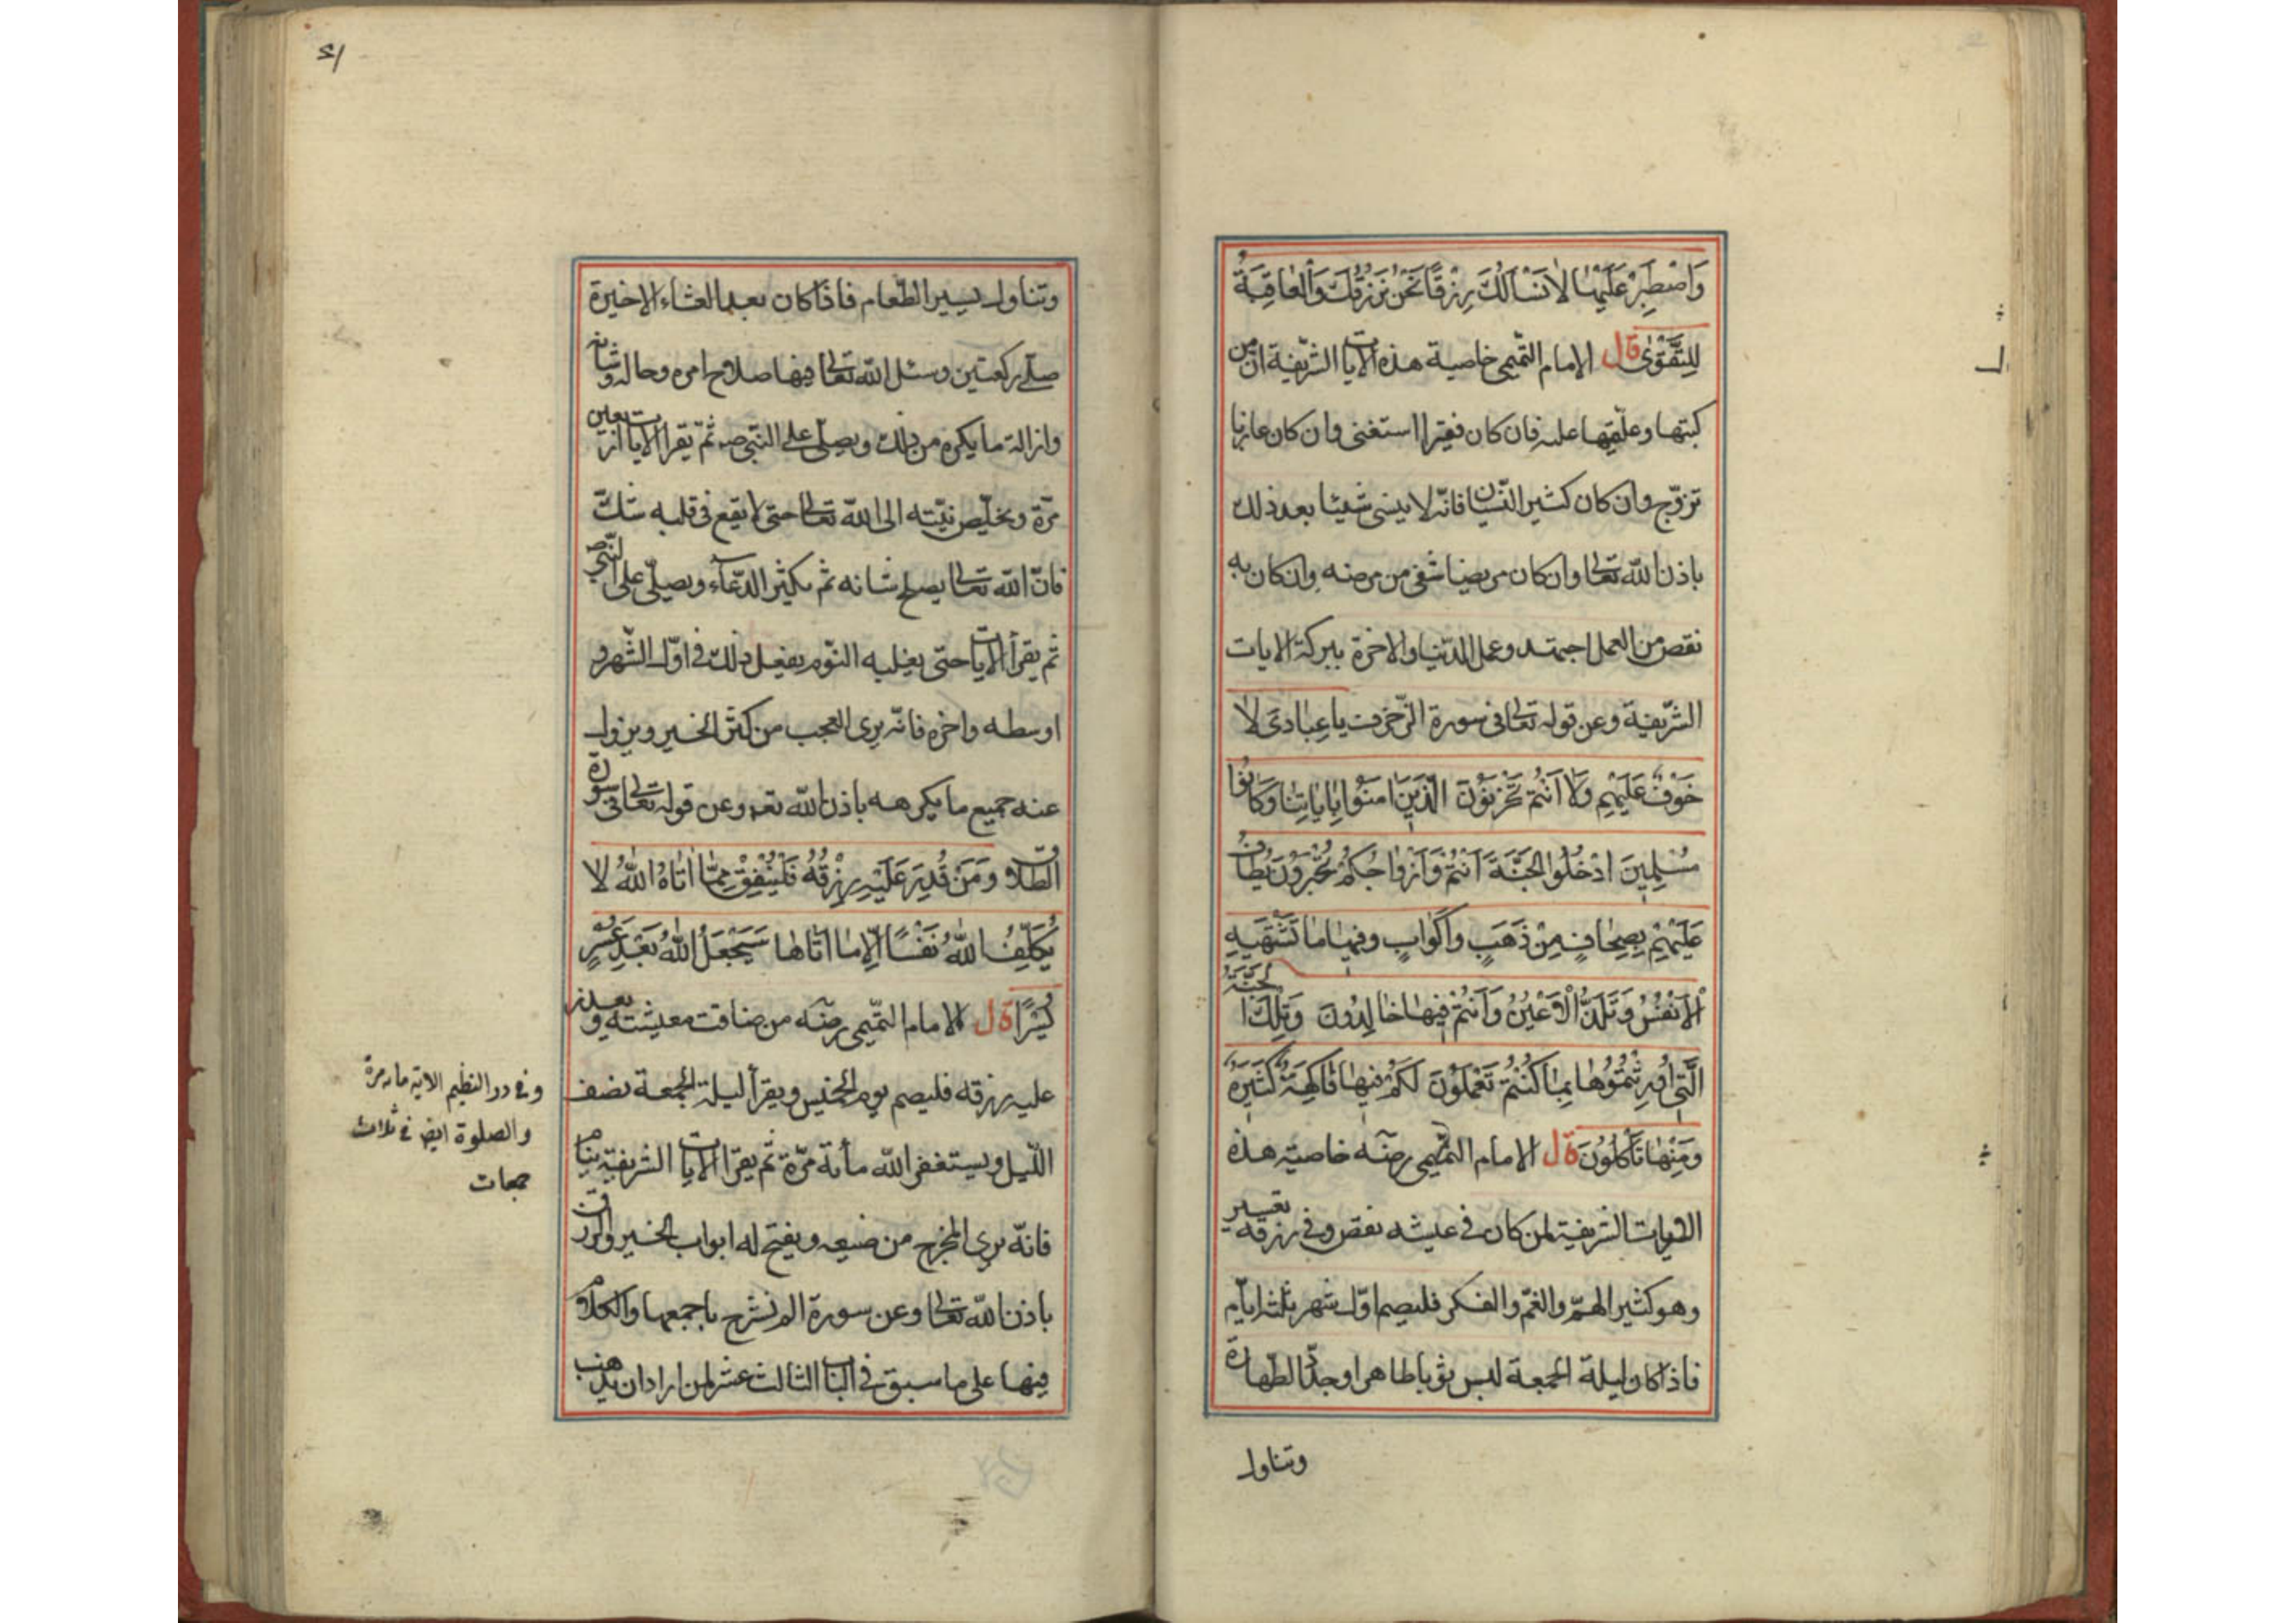 وَاصْطَبِرْ عَلَيْهَا لَا نَسْأَلُكَ رِزْقًا نَحْنُ نَرْزُقُكَ وَالْعَاقِبَةُ
لِلتَّقْوَى قال الامام التّميمى خاصية هذه الايات الشّريفة انّ من
كتبها وعلّقها عليه فان كان فقيرا استغنى وان كان عازبا
تزوّج وان كان كثير النّسيان فانّه لا ينسى شيئا بعد ذلك
باذن الله تعالى وان كان مريضا شفى من مرضه وان كان به
نقص من العمل اجتهد وعمل للدّنيا والاخرة ببركة الايات
الشّريفة وعن قوله تعالى فى سورة الزّخرف يا عِبَادِىَ لا
خَوْفٌ عَلَيْهِمْ وَلَا اَنْتُمْ تَحْزَنُوْنَ الَّذِينَ امَنُوْا بِايَاتِنَا وَكَانُوا
مُسْلِمِينَ ادْخُلُوا الْجَنَّةَ اَنْتُمْ وَاَزْوَاجُكُمْ تُحْبَرُوْنَ يُطَافُ
عَلَيْهِمْ بِصِحَافٍ مِنْ ذَهَبٍ وَاَكْوَابٍ وفِيهَا مَا تَشْتَهِيهِ
الْاَنْفُسُ وَتَلَذُّ الْاَعْيُنُ وَاَنْتُمْ فِيهَا خَالِدُونَ وَتِلْكَ الجَنَّةُ
الَّتِى اُورِثْتُمُوْهَا بِمَا كُنْتُمْ تَعْمَلُوْنَ لَكُمْ فِيهَا فَاكِهَةٌ كَثِيَرةٌ
وَمِنْهَا تَأكُلُوْنَ قال الامام التّميمى رضه خاصيّة هذه
الايات الشريفة لمن كان فى عيشه نقص وفى رزقه تعسير
وهو كثير الهمّ والغمّ والفكر فليصم اوّل شهر ثلثة ايّام
فاذا كان ليلة الجمعة لبس ثوبا طاهرا وجدّد الطّهارة
وتناول
٤١
وتناول يسير الطّعام فاذا كان بعد العشاء الاخيرة
صلّى ركعتين وسئل الله تعالى فيها صلاح امره وحاله وشانه
وازالة ما يكره من ذلك ويصلّى على النّبى صه ثمّ يقرا الايات اربعين
مرّة ويخلّص نيّته الى الله تعالى حتى لا يقع فى قلبه شكّ
فانّ الله تعالى يصلح شانه ثم يكثر الدّعاء ويصلّى على النّبى ص
ثم يقرأ الايات حتّى يغلبه النّوم يفعل ذلك فى اوّل الشّهر و
اوسطه واخره فانّه يرى العجب من كثرة الخير ويزول
عنه جميع ما يكرهه باذن الله تعه وعن قوله تعالى فى سورة
الطّلاق وَمَنْ قُدِرَ عَلَيْهِ رِزْقُهُ فَلْيُنْفِقْ مِمَّا اتَاهُ اللهُ لا
يُكَلِّفُ اللهُ نَفْسًا اِلَّا مَا اتَاهَا سَيَجْعَلُ اللهُ بَعْدَ عُسْرٍ
يُسْرًا قال الامام التّميمى رضه من ضاقت معيشته و
عليه رزقه فليصم يوم الخميس ويقرأ ليلة الجمعة نصف
اللّيل ويستغفر الله مأية مرّة ثم يقرا الايات الشريفة
فانّه يرى المخرج من ضيقه ويفتح له ابواب الخير والرزق
باذن الله تعالى وعن سورة الم نشرح باجمعها والكلام
فيها على ما سبق فى الباب الثالث عشر لمن اراد ان يذهب
وفى در النظيم الاية مايه مرة
والصلوة ايضا فى ثلاث
جمعات